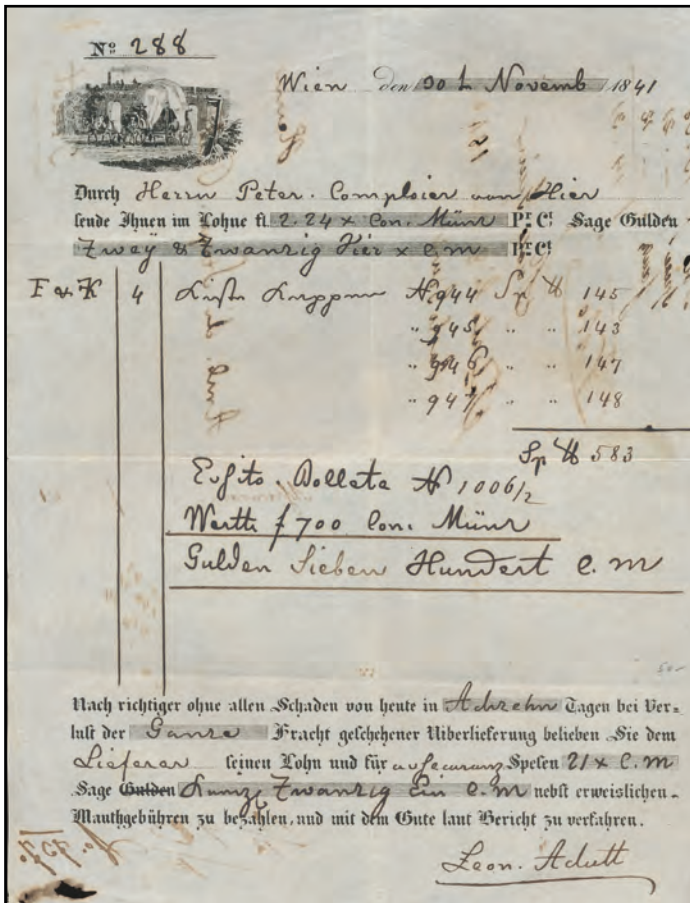 No 288
Wien den 30 t Novemb 1841
Durch Herrn Peter Comploier von Hier
sende Ihnen im Lohne fl. 2.24 x Con. Münz Pr Ct Sage Gulden
Zwey & Zwanzig Vier x C.M Pr Ct
F & K 4 Kisten N 944 Sp ℔ 145
" 945 " " 143
" 946 " " 147
" 947 " " 148
Sp ℔ 583
Esito Bolleta N 1006/2
Werth f 700 Con. Münz
Gulden Sieben Hundert C. M
Nach richtiger ohne allen Schaden von heute in Achzehn Tagen bei Ver=
lust der Ganze Fracht geschehener Uiberlieferung belieben Sie dem
Lieferer seinen Lohn und für assecuranz Spesen 21 x C.M
Sage Gulden Zwanzig Ein C.M nebst erweislichen
Mauthgebühren zu bezahlen, und mit dem Gute laut Bericht zu verfahren.
Leon. Adutt